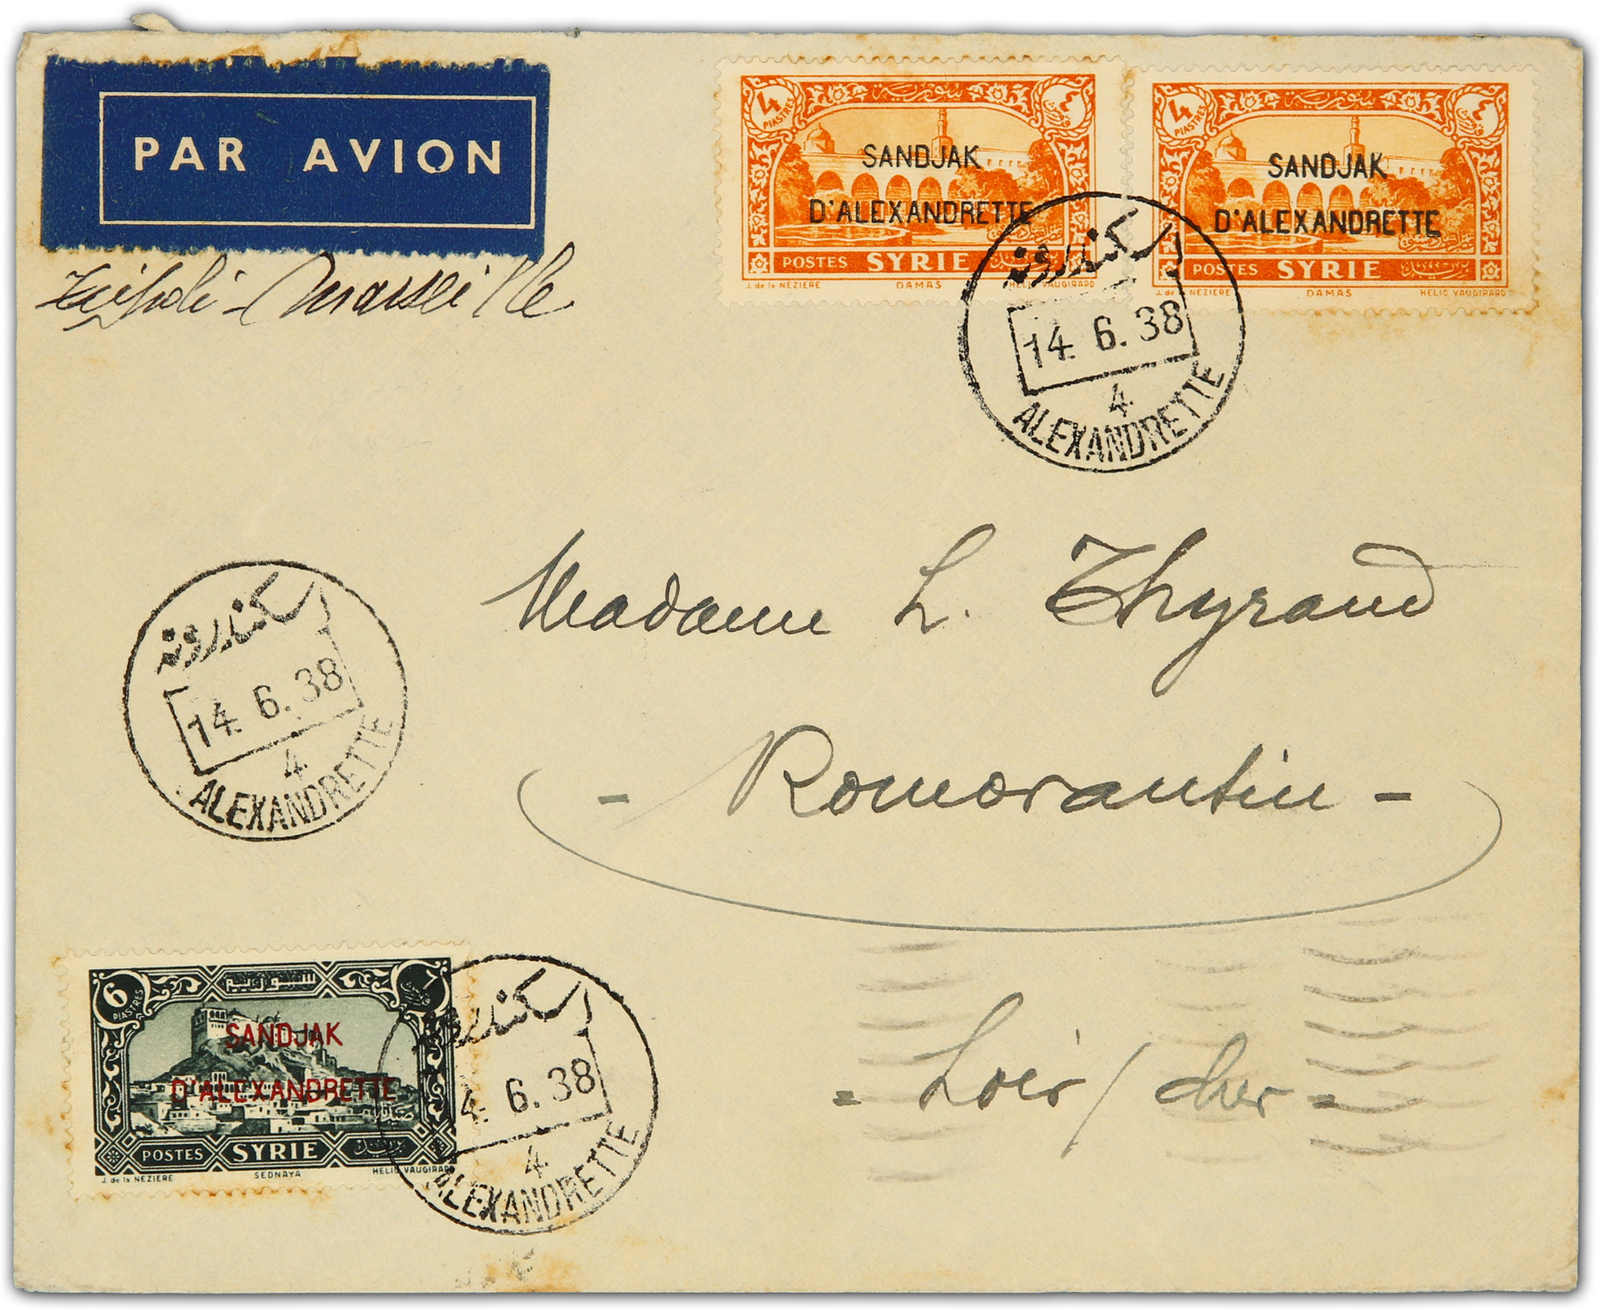 PAR AVION
Tripoli - Marseille
4
PIASTRES
٤
SANDJAK
D'ALEXANDRETTE
POSTES SYRIE
J. de la NEZIERE DAMAS HELIO VAUGIRARD
4
PIASTRES
٤
SANDJAK
D'ALEXANDRETTE
POSTES SYRIE
J. de la NEZIERE DAMAS HELIO VAUGIRARD
اسكندرونه
14. 6. 38
4
ALEXANDRETTE
Madame L. Thyraud
- Romorantin -
= Loir / cher =
اسكندرونه
14. 6. 38
4
ALEXANDRETTE
6
PIASTRES
٦
SANDJAK
D'ALEXANDRETTE
POSTES SYRIE
J. de la NEZIERE SEDNAYA HELIO VAUGIRARD
اسكندرونه
4. 6. 38
4
ALEXANDRETTE